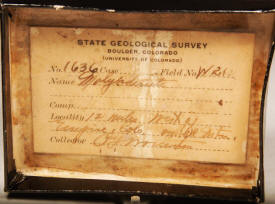 STATE GEOLOGICAL SURVEY
BOULDER, COLORADO
(UNIVERSITY OF COLORADO)
No. 1636 Case Field No.
Name Molybdenite
Comp.
Locality 12 miles West of
Empire, Colo.
Collector